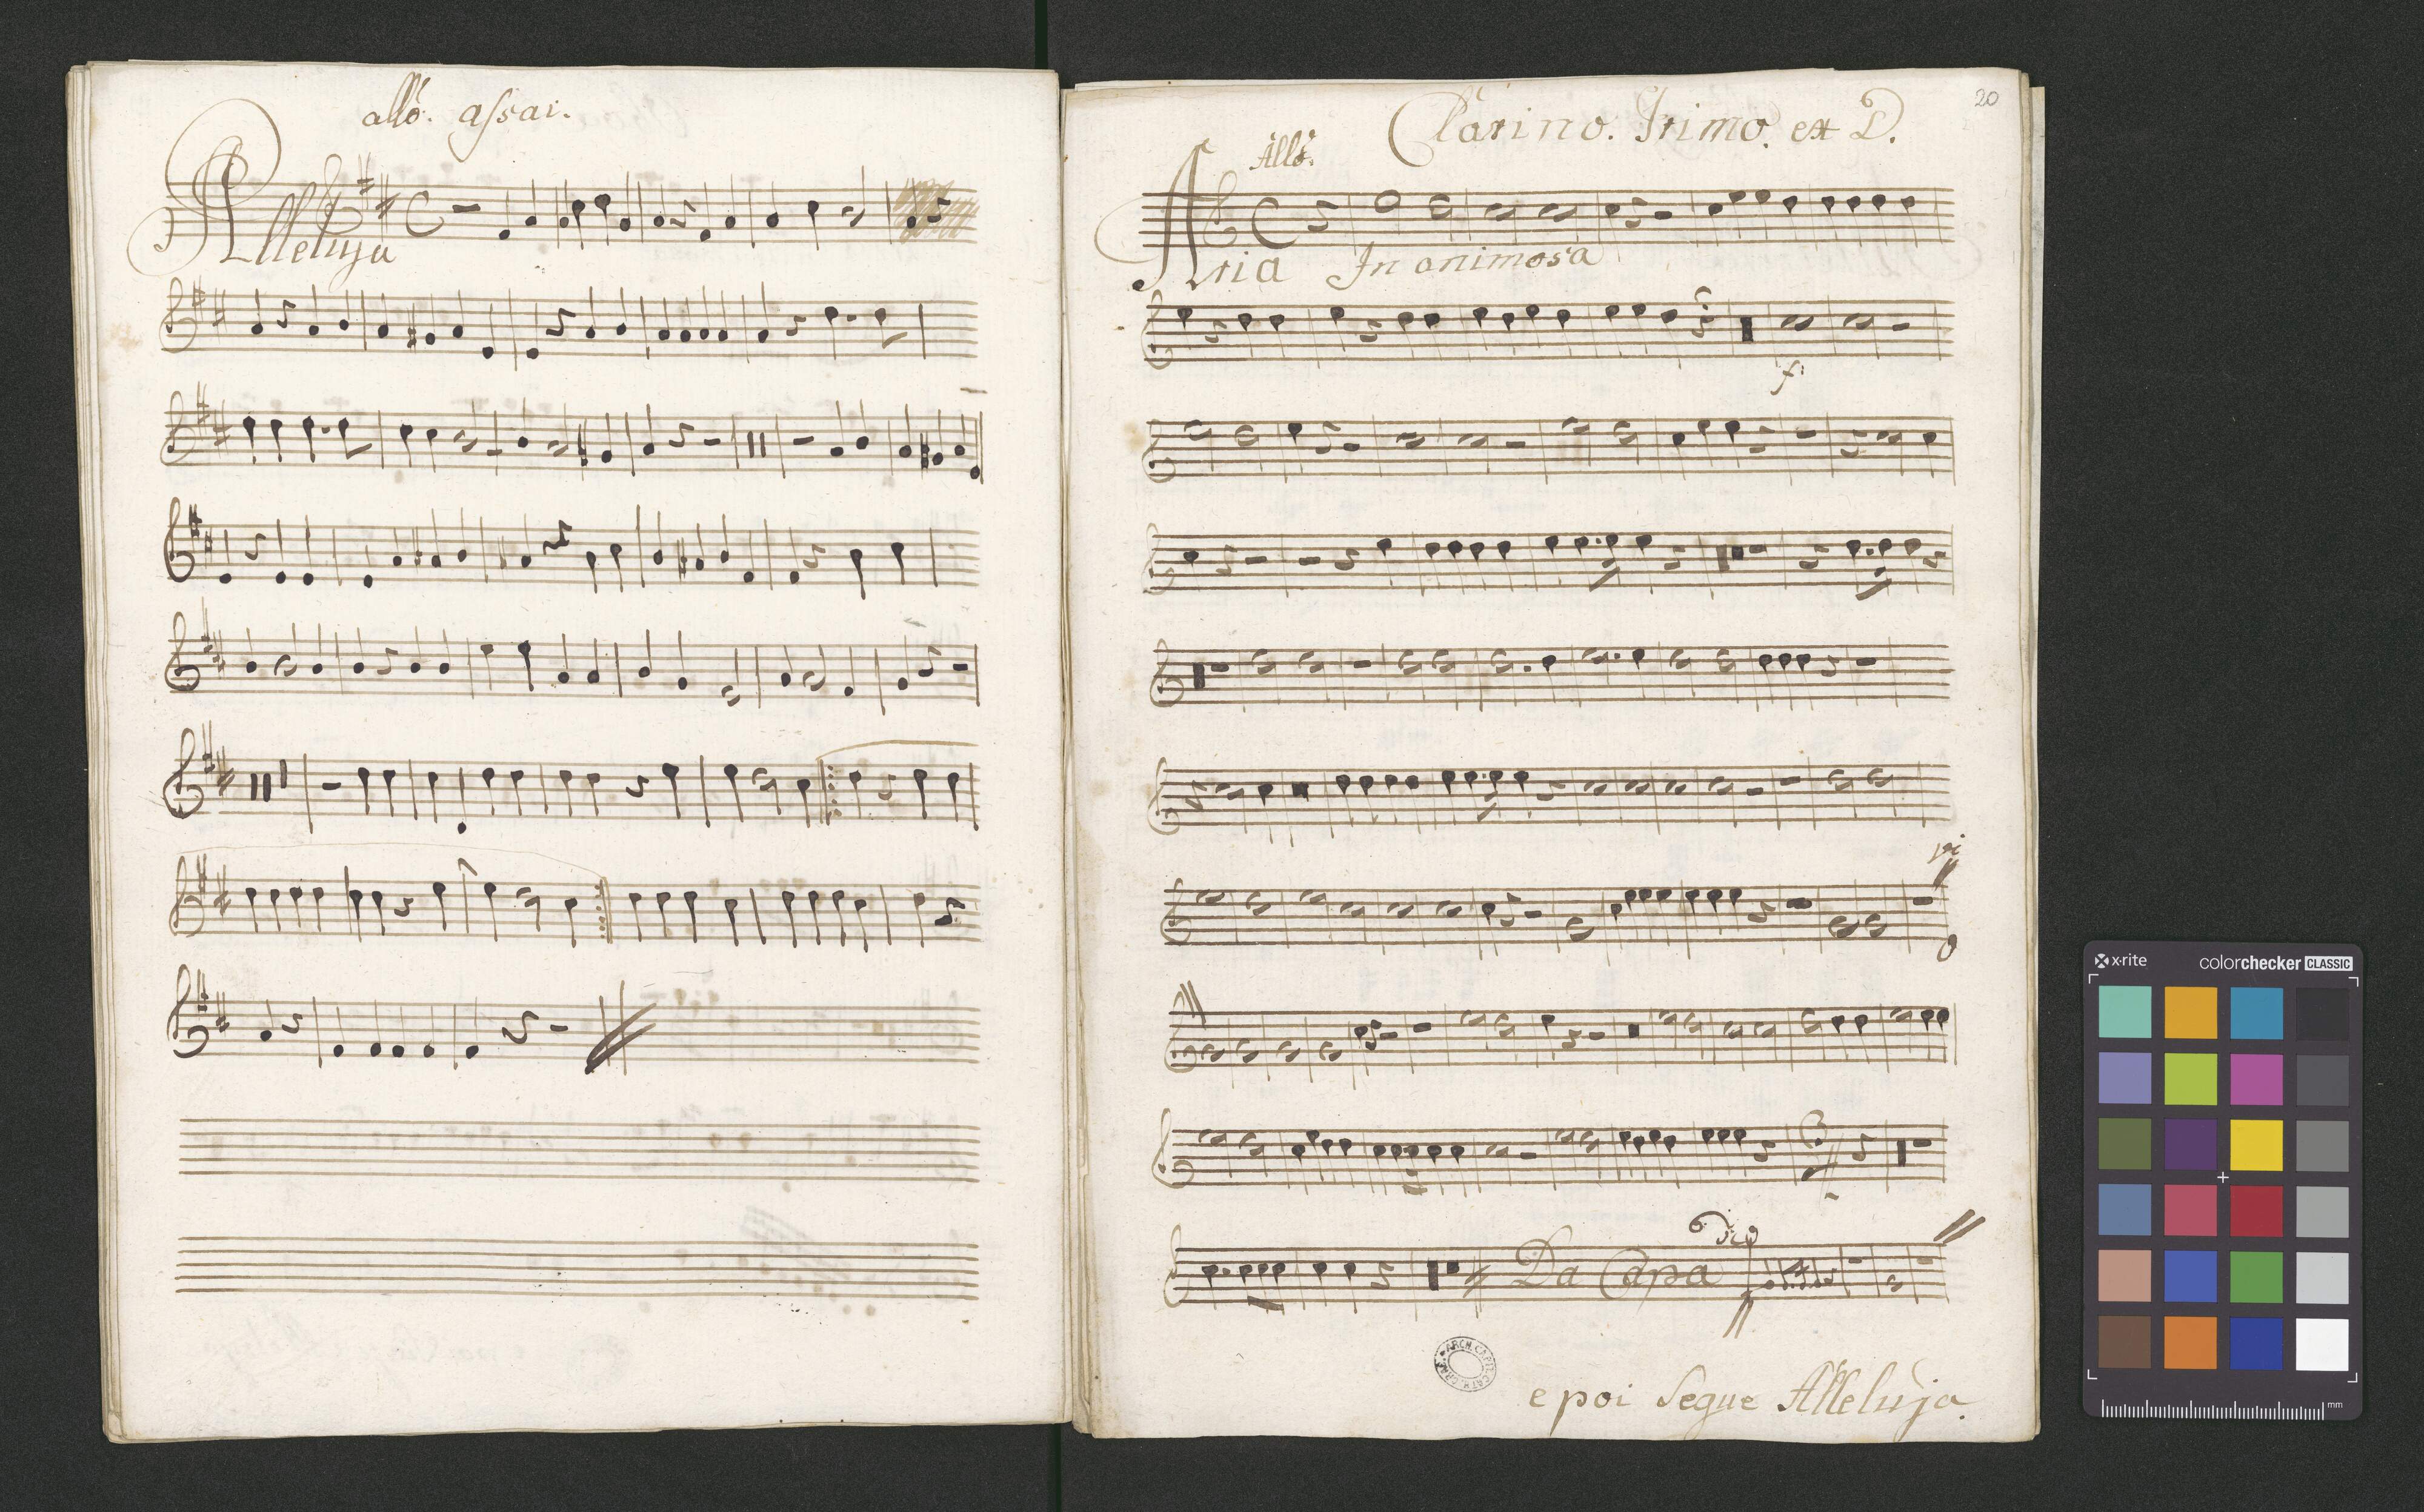 allò. assai.
Alleluja
20
Clarino. Primo. ex D.
Allò.
Aria In animosa
f:
Da Capo
ARCH. CAPIT. CATH. CRAC.
e poi Segue Alleluja.
x-rite
colorchecker CLASSIC
mm